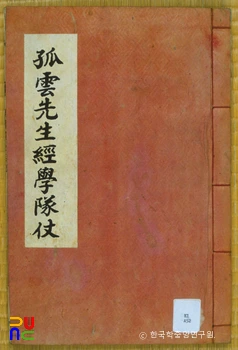 孤雲先生經學隊仗
© 한국학중앙연구원